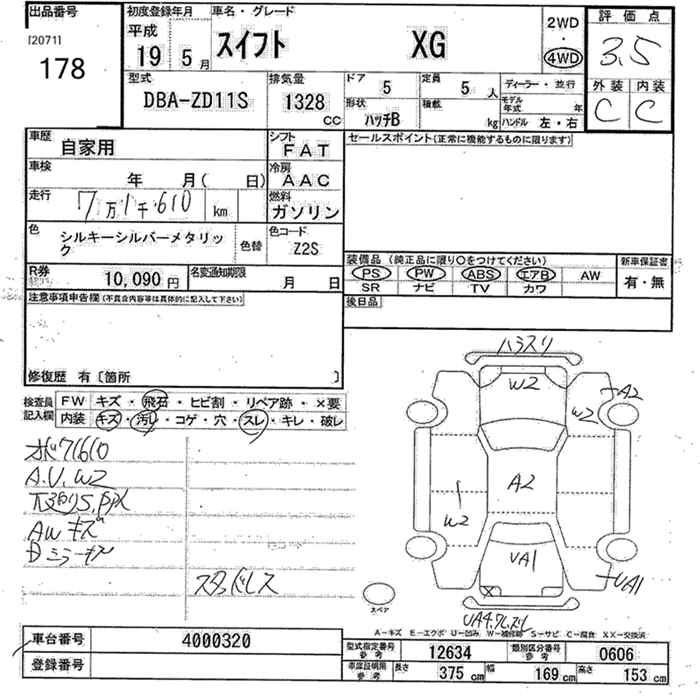 出品番号
[2071]
178
初度登録年月
平成
19 5月
車名・グレード
スイフト XG
2WD
・
4WD
評価点
3.5
外装 内装
C C
型式
DBA-ZD11S
排気量
1328
CC
ドア
5
定員
5 人
形状
ハッチB
積載
kg
ディーラー・並行
モデル年式 年
ハンドル 左・右
車歴
自家用
シフト
FAT
車検
年 月( 日)
冷房
AAC
走行
7万1千610 km
燃料
ガソリン
色
シルキーシルバーメタリック
色替
色コード
Z2S
R券
10,090 円
名変通知期限
月 日
セールスポイント(正常に機能するものに限ります)
装備品 (純正品に限り○をつけてください)
PS PW ABS エアB AW
SR ナビ TV カワ
新車保証書
有・無
後日品
注意事項申告欄(不具合内容等は具体的に記入して下さい)
修復歴 有〔箇所 〕
検査員
記入欄
FW キズ・飛石・ヒビ割・リペア跡・×要
内装 キズ・汚レ・コゲ・穴・スレ・キレ・破レ
A.U.W2
AWキズ
Dミラーキズ
スタッドレス
W2
A2
W2
A2
W2
UA1
UA1
スペア
A−キズ E−エクボ U−凹み W−補修跡 S−サビ C−腐食 XX−交換済
車台番号
4000320
登録番号
型式指定番号
参考
12634
類別区分番号
参考
0606
車庫証明用
参考
長さ 375 cm
幅 169 cm
高さ 153 cm